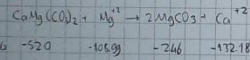 CaMg(CO₃)₂ + Mg⁺² → 2MgCO₃ + Ca⁺²
-520 -108.99 -246 -132.18